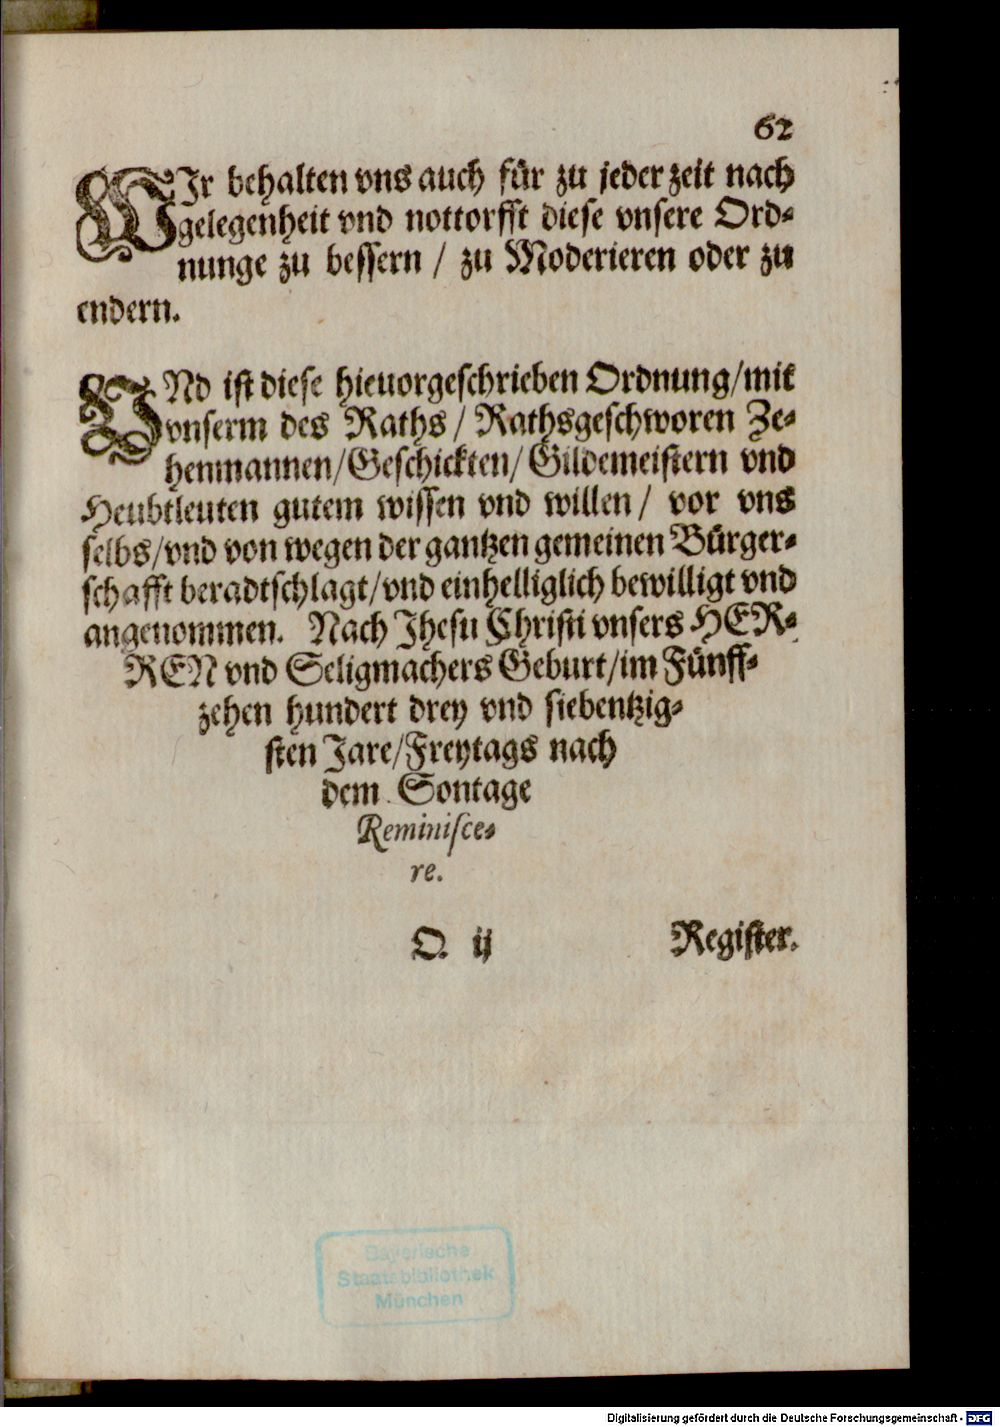 62
WIr behalten vns auch für zu jeder zeit nach
gelegenheit vnd nottorfft diese vnsere Ord-
nunge zu bessern / zu Moderieren oder zu
endern.
VNd ist diese hieuorgeschrieben Ordnung/mit
vnserm des Raths / Rathsgeschworen Ze-
henmannen/Geschickten/ Gildemeistern vnd
Heubtleuten gutem wissen vnd willen / vor vns
selbs/vnd von wegen der gantzen gemeinen Bürger-
schafft beradtschlagt/vnd einhelliglich bewilligt vnd
angenommen. Nach Jhesu Christi vnsers HER-
REN vnd Seligmachers Geburt/im Fünff-
zehen hundert drey vnd siebentzig-
sten Jare/Freytags nach
dem Sontage
Reminisce-
re.
O. ij Register.
Bayerische
Staatsbibliothek
München
Digitalisierung gefördert durch die Deutsche Forschungsgemeinschaft - DFG